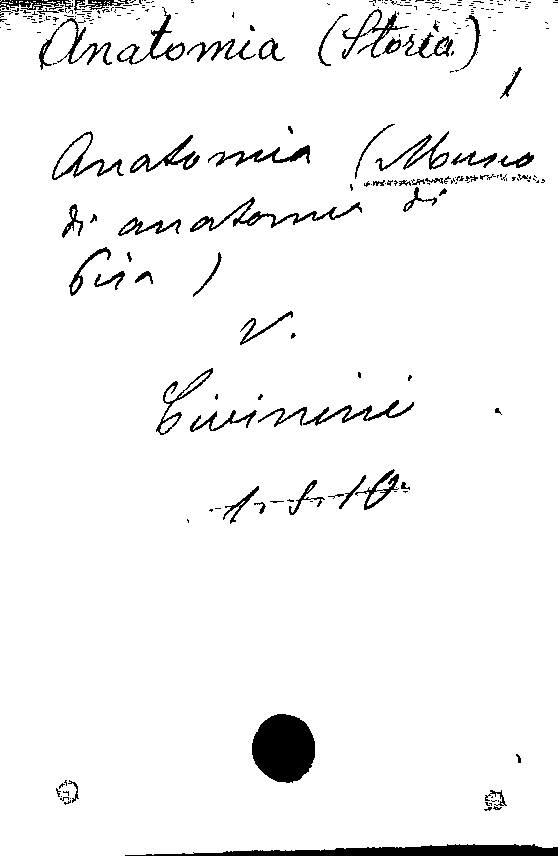 Anatomia (Storia)
Anatomia (Museo
di anatomia di
Pisa)
V.
Civinini
1. S. 10.